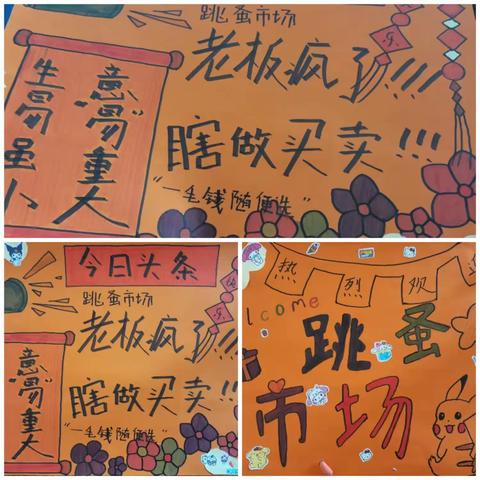 跳蚤市场
老板疯了!!!
瞎做买卖!!!
"一毛钱随便选"
意易重大
生易虽小
乐
今日头条
跳蚤市场
老板疯了!!!
瞎做买卖!!!
"一毛钱随便选"
意易重大
乐
热烈欢
come
跳蚤
市场